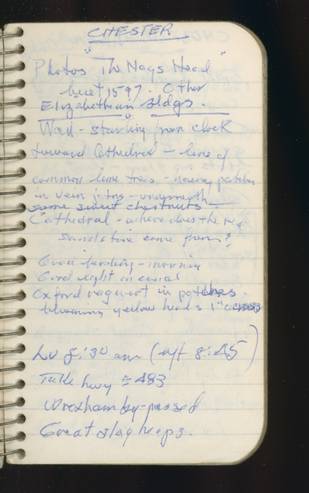 CHESTER
Photos "The Nags Head"
built 1597. Other
Elizabethan Bldgs.
Wall - starting from clock
toward Cathedral - line of
common lime trees -
in
some sweet chestnuts -
Cathedral - where does the red
sandstone come from?
Good birding - morning
Good light in canal
Oxford ragwort in patches.
blooming yellow heads 1"
Lv 8:30 am (aft 8:45)
Take hwy = 483
Wrexham by-passed
Great slag heaps.